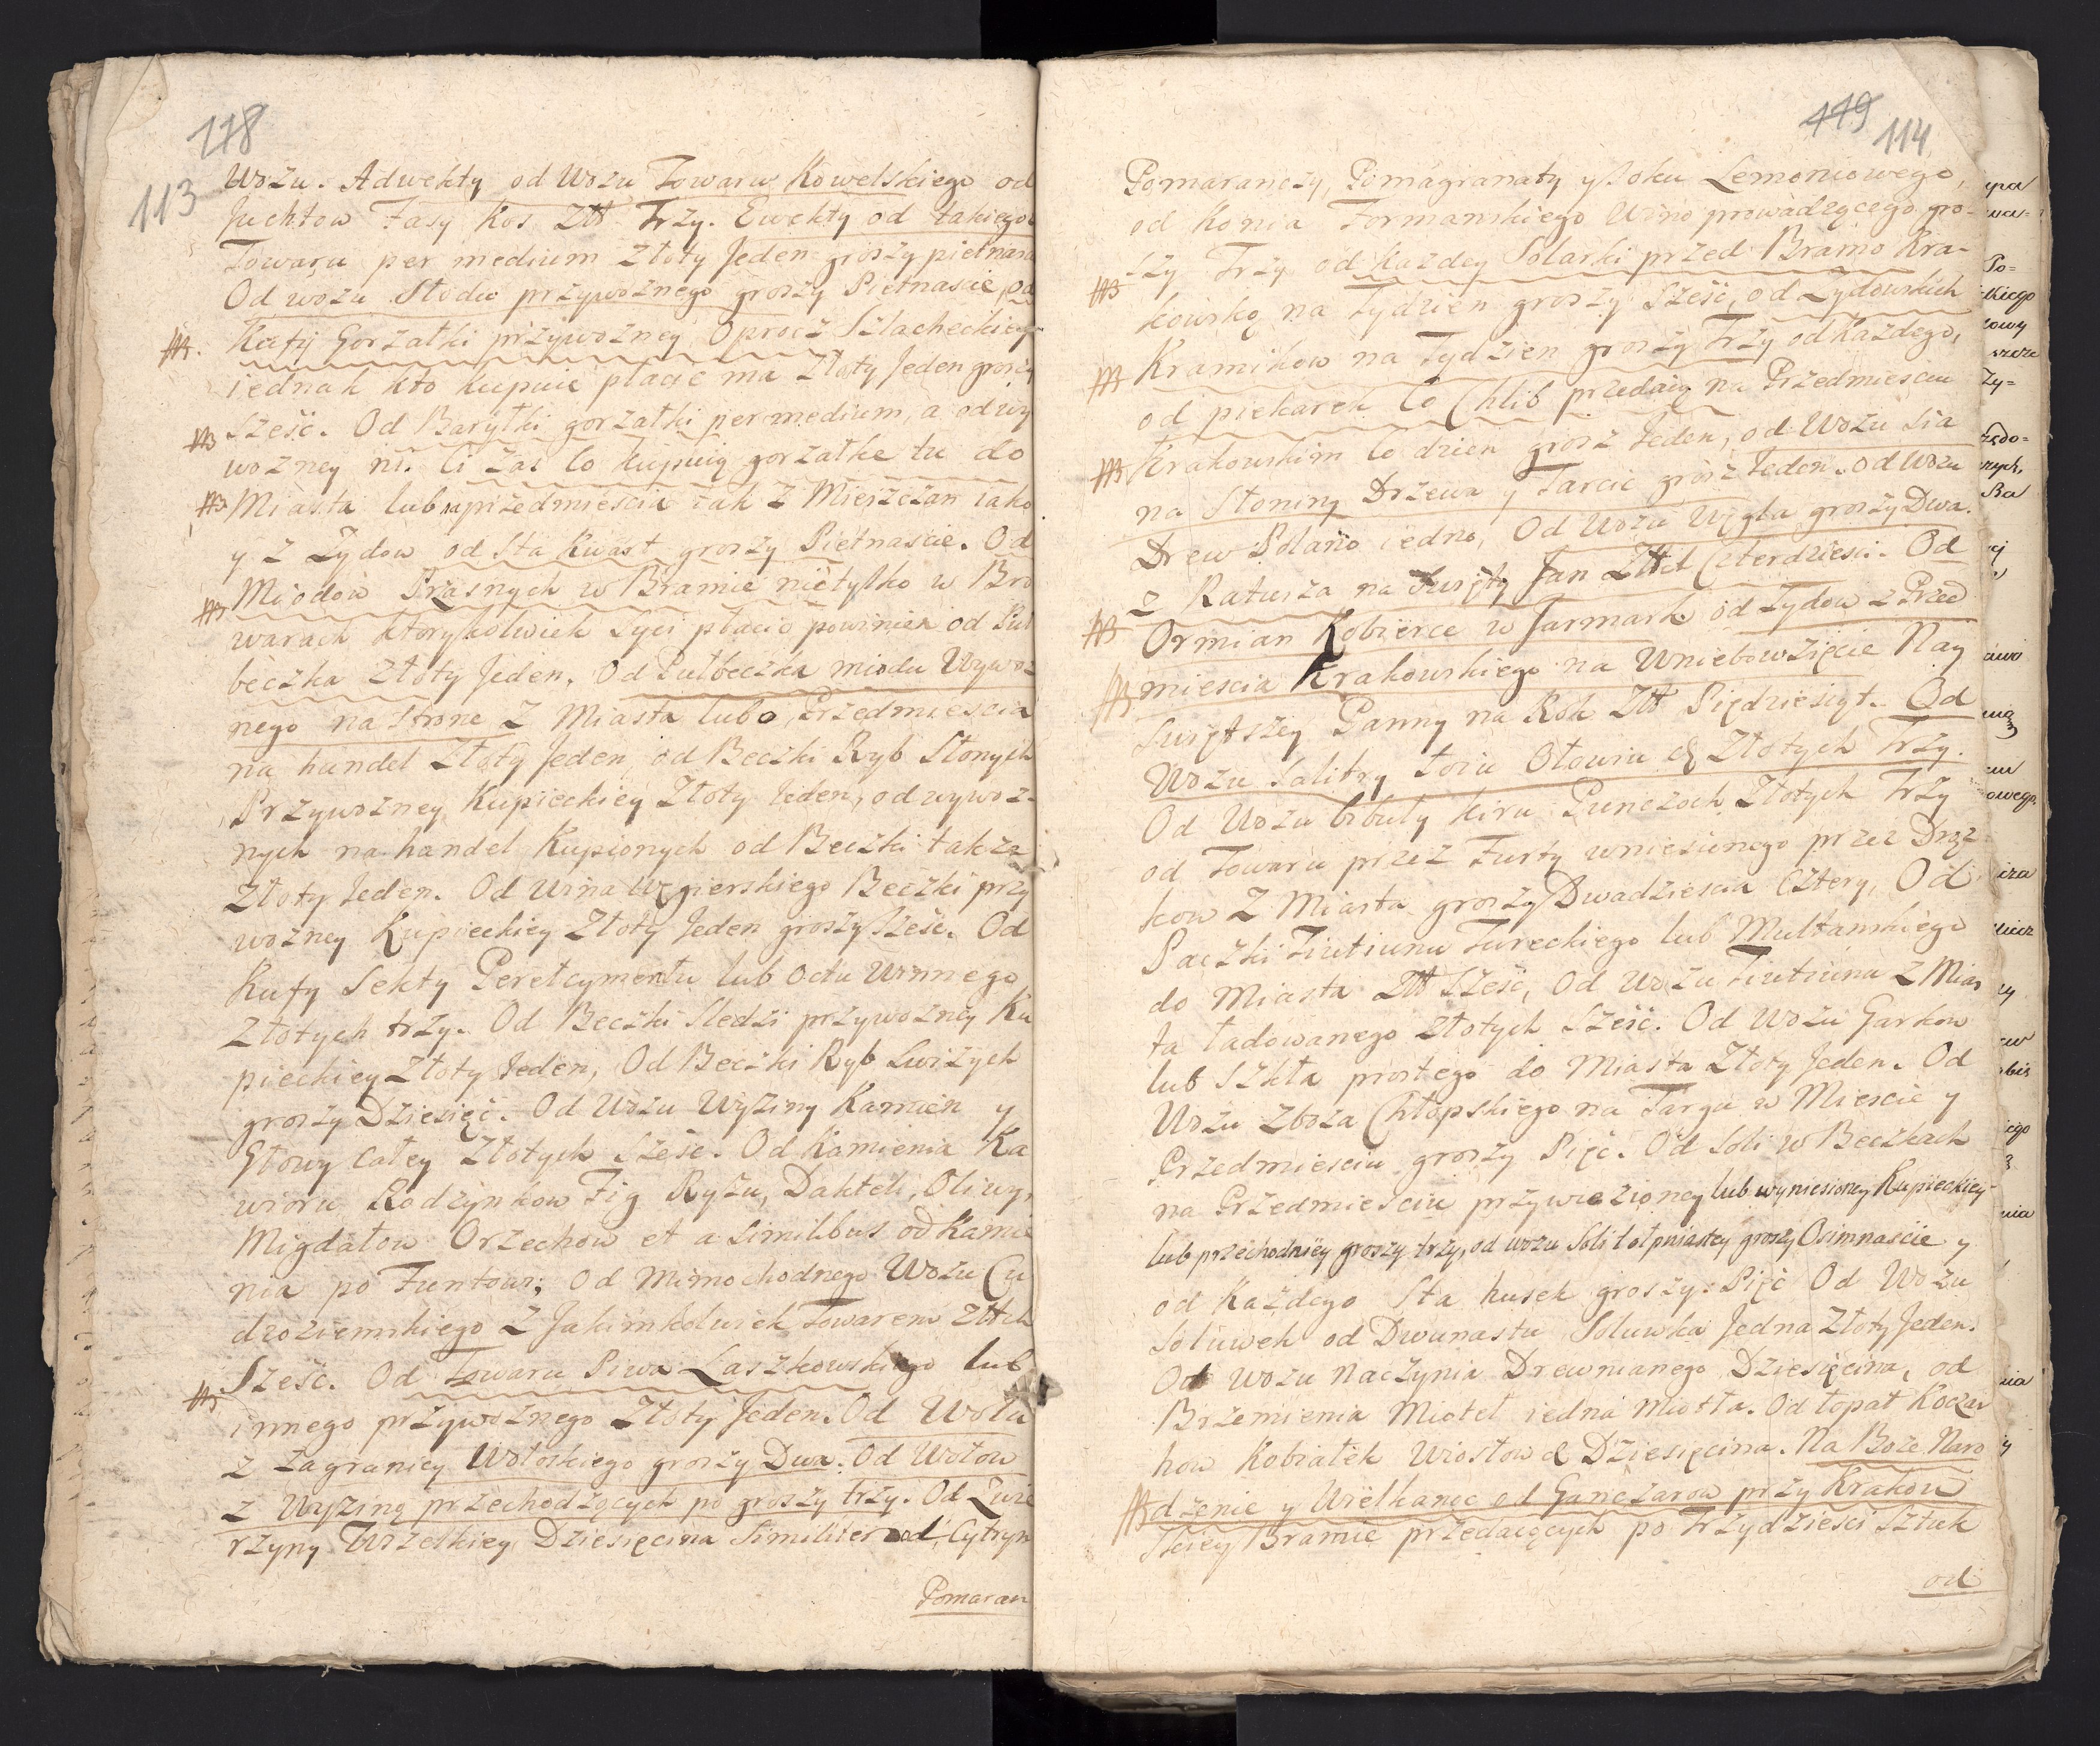 118
113
Wozu. Adwekty od Wozu Towaru Kowelskiego od
Juchtow Fasy Kos Złł Trzy. Ewekty od takiego
Towaru per medium Złoty Jeden groszy pietnasc
Od wozu Słodu przywoznego groszy Pietnascie, od
Kufy Gorzałki przywozney Oprocz Szlacheckiey
iednak kto kupuie płacic ma Złoty Jeden groszy
Szesc. Od Baryłki gorzałki per medium, a od wy
wozney ni. Ci zas Co kupuią gorzałke tu do
Miasta lub na przedmiescia tak z Mieszczan iako
y z Zydow od Sta Kwart groszy Pietnascie. Od
Miodow Przasnych w Bramie nietylko w Bro
warach ktorykolwiek Syci płacic powinien od Puł
beczka Złoty Jeden. Od Pułbeczka miodu Wywoz
nego na strone z Miasta lubo Przedmiescia
na handel Złoty Jeden, od Beczki Ryb Słonych
Przywozney Kupieckiey Złoty Jeden, od wywoz-
nych na handel Kupionych od Beczki takze
Złoty Jeden. Od Wina Węgierskiego Beczki przy
wozney Kupieckiey Złoty Jeden groszy Szesc. Od
Kufy Sekty Peretcymentu lub octu Winnego
Złotych trzy. Od Beczki Sledzi przywozney Ku
pieckiey Złoty Jeden, Od Beczki Ryb Swizych
groszy Dziesięc. Od Wozu Wyziny Kamien y
Głowy całey Złotych Szesc. Od Kamienia Ka
wioru Rodzynkow Fig Ryzu, Dakteli, Oliwy,
Migdałow Orzechow et a Similibus od Kamie
nia po Funtowi; Od Mimochodnego Wozu Cu
dzoziemskiego z Jakimkolwiek Towarem Złtch
Szesc. Od Towaru Piwa Laszkowskiego lub
innego przywoznego Złoty Jeden. Od Wołu
z zagranicy Wołoskiego groszy Dwa. Od Wołow
z Wyziną przechodzących po groszy trzy. Od Zwie
rzyny Wszelkiey Dziesięcina Similiter od Cytryn
Pomaran
119
114
Pomaranczy, Pomagranaty y Soku Lemoniowego,
od Konia Formanskiego Wino prowadzącego gro-
szy Trzy od kazdey Solarki przed Bramo Kra-
kowsko na Tydzien groszy Szesc, od Zydowskich
Kramikow na Tydzien groszy Trzy od Kazdego,
od piekarek Co Chlib przedaią na Przedmiesciu
Krakowskim Co dzien grosz Jeden, od Wozu Sia
na Słoniny Drzewa y Tarcic grosz Jeden. od Wozu
Drew Polano iedno, Od Wozu Węgla groszy Dwa.
z Ratusza na Swięty Jan Złłch Czterdziesci. Od
Ormian Kobierce w Jarmark od Zydow z Przed
miescia Krakowskiego na Wniebowzięcie Nay
Swiętszey Panny na Rok Złł Pięćdziesiąt. Od
Wozu Salitry Łoiu Ołowiu & Złotych Trzy.
Od Wozu bibuły Kiru Punczoch Złotych Trzy
od Towaru przez Furty wniesionego przez Drąz
kow z Miasta groszy Dwadziescia Cztery, Od
Paczki Tiutiunu Tureckiego lub Multanskiego
do Miasta Złł Szesc, Od Wozu Tiutiunu z Mias
ta ładowanego Złotych Szesc. Od Wozu Garkow
lub Szkła prostego do Miasta Złoty Jeden. Od
Wozu Zboza Chłopskiego na Targu w Miescie y
Przedmiesciu groszy Pięc. Od Soli w Beczkach
na Przedmiesciu przywiezioney lub wyniesioney Kupieckiey
lub przechodniey groszy trzy, od wozu Soli tołpiastey groszy Osimnascie y
od Kazdego Sta husek groszy Pięc Od Wozu
Soluwek od Dwunastu Soluwka Jedna Złoty Jeden.
Od Wozu Naczynia Drewnianego Dziesięcina, od
Brzemienia Mioteł iedna Miotła. Od łopat Koczar
how Kobiałek Wiosłow & Dziesięcina. Na Boze Naro
dzenie y Wielkanoc od Ganczarow przy Krakow
Skiey Bramie przedaiących po Trzydziesci Sztuk
od